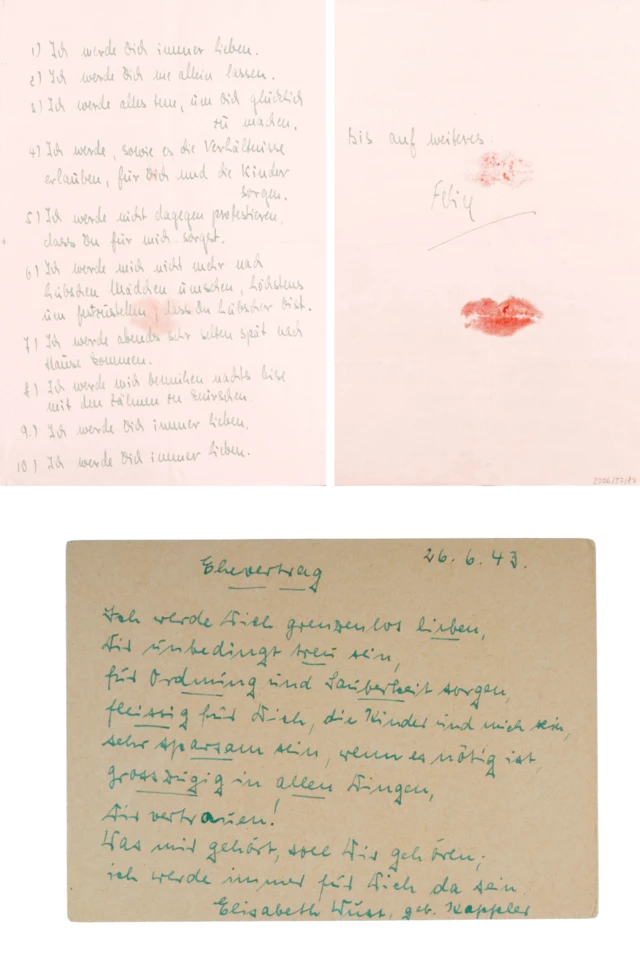 1) Ich werde Dich immer lieben.
2) Ich werde Dich nie allein lassen.
3) Ich werde alles tun, um Dich glücklich
zu machen.
4) Ich werde, sowie es die Verhältnisse
erlauben, für Dich und die Kinder
sorgen.
5) Ich werde nicht dagegen protestieren,
dass Du für mich sorgst.
6) Ich werde mich nicht mehr nach
hübschen Mädchen umsehen, höchstens
um festzustellen, dass Du hübscher bist.
7) Ich werde abends sehr selten spät nach
Hause kommen.
8) Ich werde mich bemühen nachts leise
mit den Zähnen zu knirschen.
9.) Ich werde Dich immer lieben.
10) Ich werde Dich immer lieben.
Bis auf weiteres.
Felix
Ehevertrag
26.6.43.
Ich werde Dich grenzenlos lieben,
Dir unbedingt treu sein,
für Ordnung und Sauberkeit sorgen,
fleissig für Dich, die Kinder und mich sein,
sehr sparsam sein, wenn es nötig ist,
grosszügig in allen Dingen,
Dir vertrauen!
Was mir gehört, soll Dir gehören;
ich werde immer für Dich da sein.
Elisabeth Wust, geb. Kappler